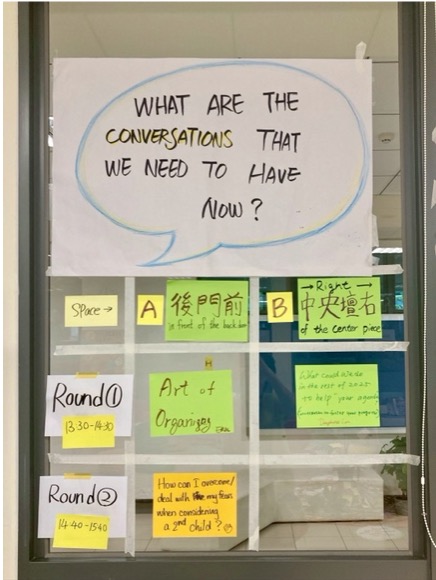 WHAT ARE THE
CONVERSATIONS THAT
WE NEED TO HAVE
NOW?
SPACE →
A
後門前
in front of the back door
B
→ Right →
中央壇右
of the center piece
Round①
13:30-14:30
Art of
Organizing
What could
in the rest of 2025
to help your agenda
Round②
14:40-15:40
How can I overcome/
deal with my fear
when considering
a 2nd child?